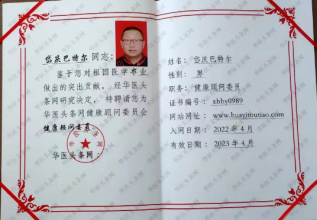 岱庆巴特尔 同志：
鉴于您对祖国医学事业
做出的突出贡献，经华医头
条网研究决定，特聘请您为
华医头条网健康顾问委员会
健康顾问委员
华医头条网：
姓名：岱庆巴特尔
性别：男
职务：健康顾问委员
证书编号：xhhy0989
网址：www.huayitoutiao.com
入网日期：2022年4月
有效日期：2023年4月